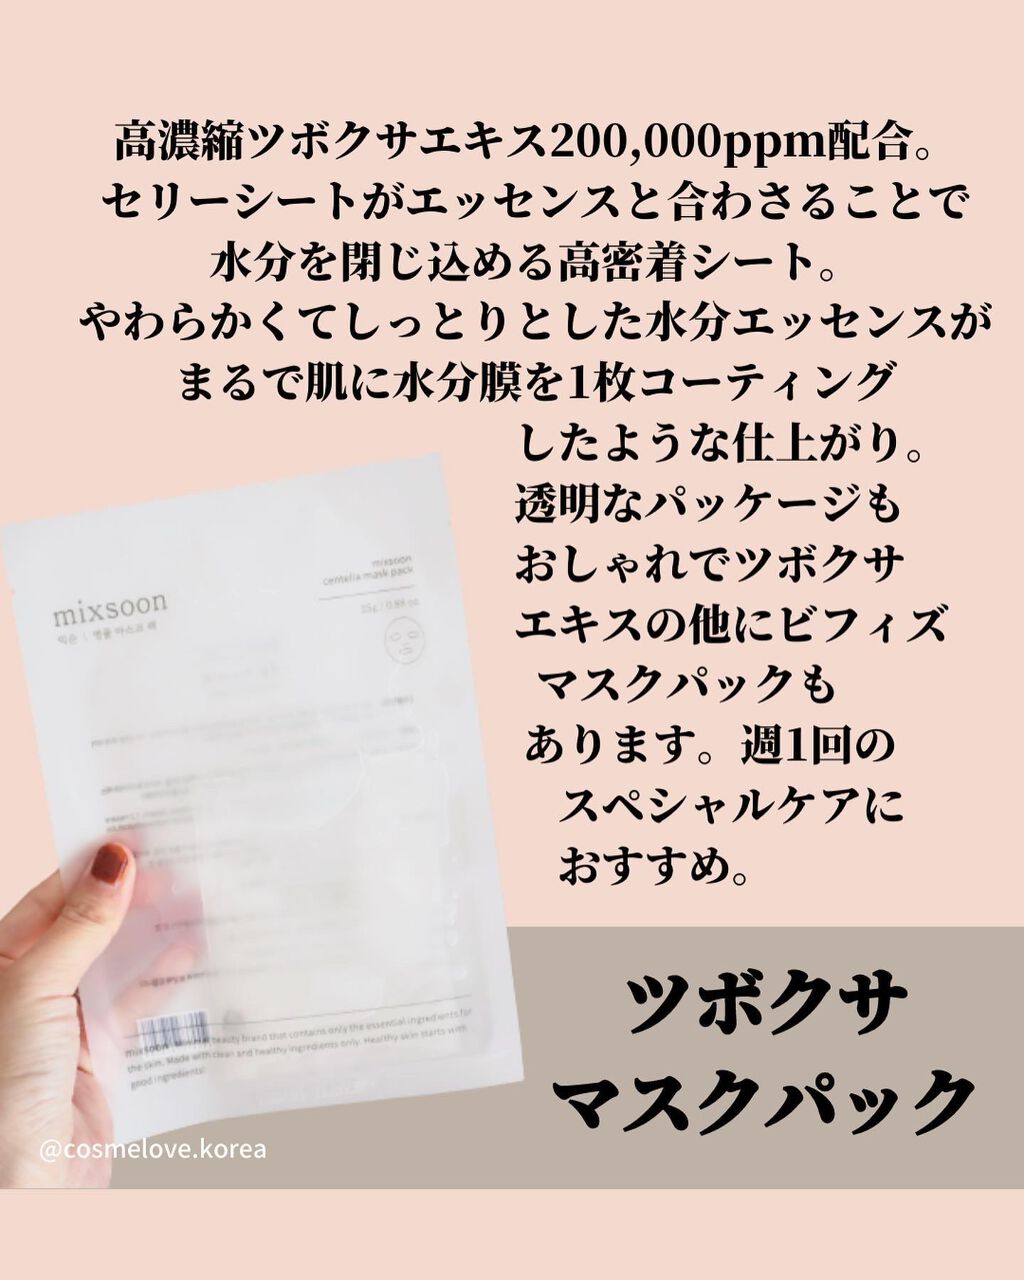 高濃縮ツボクサエキス200,000ppm配合。
セリーシートがエッセンスと合わさることで
水分を閉じ込める高密着シート。
やわらかくてしっとりとした水分エッセンスが
まるで肌に水分膜を1枚コーティング
したような仕上がり。
透明なパッケージも
おしゃれでツボクサ
エキスの他にビフィズ
マスクパックも
あります。週1回の
スペシャルケアに
おすすめ。
mixsoon
centella mask pack
25g / 0.88 oz
mixsoon
믹순 | 병풀 마스크 팩
mixsoon
beauty brand that contains only the essential ingredients for
the skin. Made with clean and healthy ingredients only. Healthy skin starts with
good ingredients!
ツボクサ
マスクパック
@cosmelove.korea